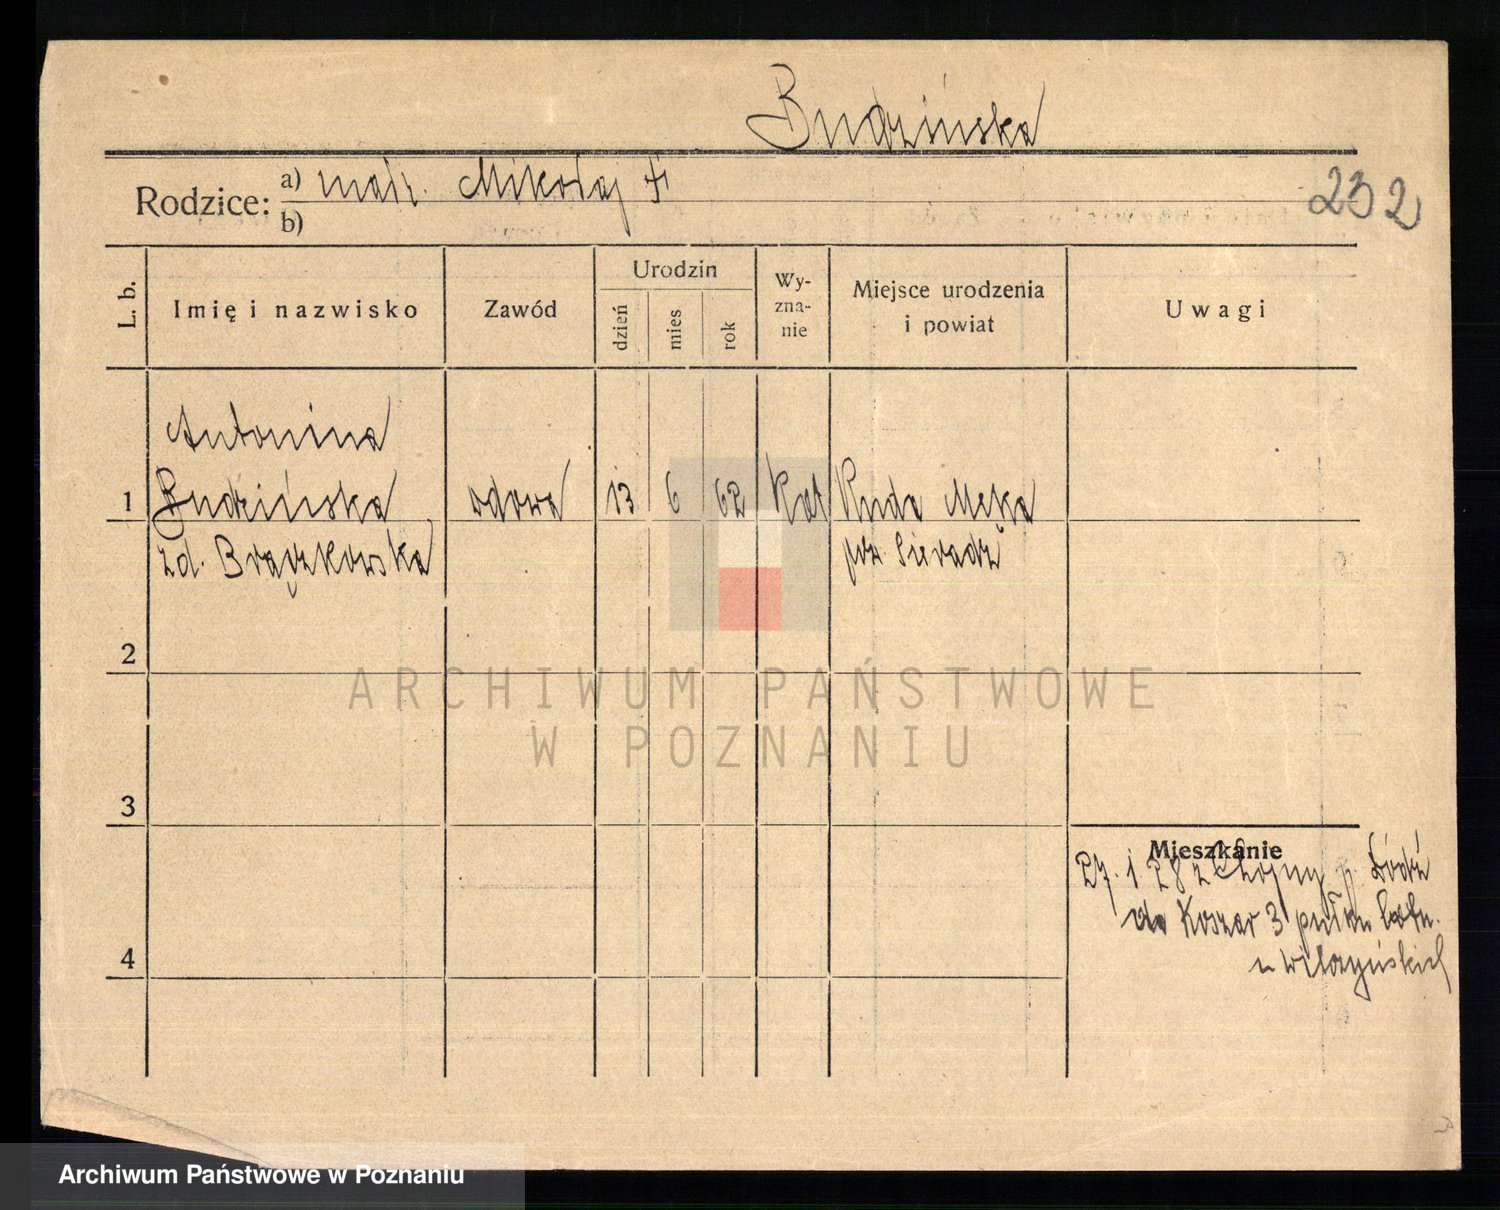 Budzińska
232
Rodzice: a) małż. Mikołaj †
b)
L. b.
Imię i nazwisko
Zawód
Urodzin
dzień
mies
rok
Wy-
zna-
nie
Miejsce urodzenia
i powiat
Uwagi
Antonina
1 Budzińska wdowa 13 6 62 Kat Ruda Męka
zd. Brączkowska pow. Sieradz
2
3
4
Mieszkanie
27. 1 28 z Chojny p. Łódź
do Koszar 3 pułku lotn.
u Wilczyńskich
ARCHIWUM PAŃSTWOWE
W POZNANIU
Archiwum Państwowe w Poznaniu